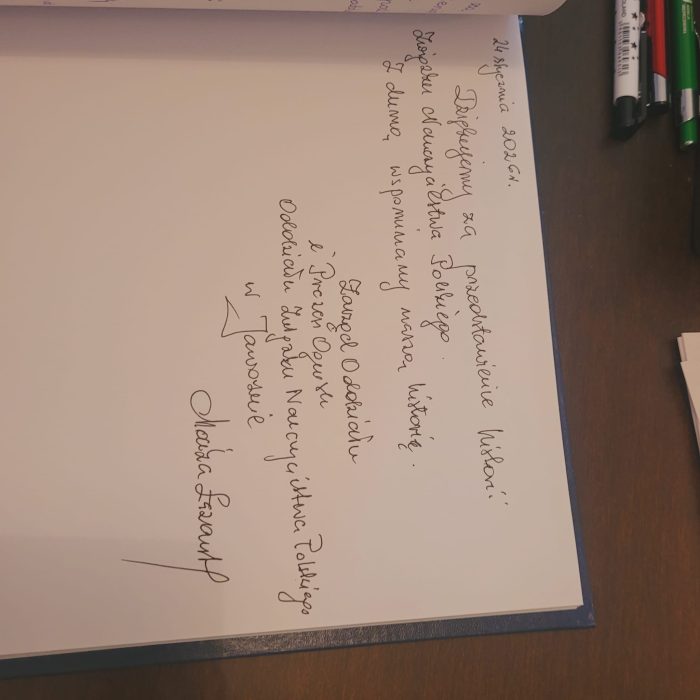 24 stycznia 2026r.
Dziękujemy za przedstawienie historii
Związku Nauczycielstwa Polskiego.
Z dumą wspominamy naszą historię.
Zarząd Oddziału
i Prezes
Oddziału Związku Nauczycielstwa Polskiego
w Jaworznie